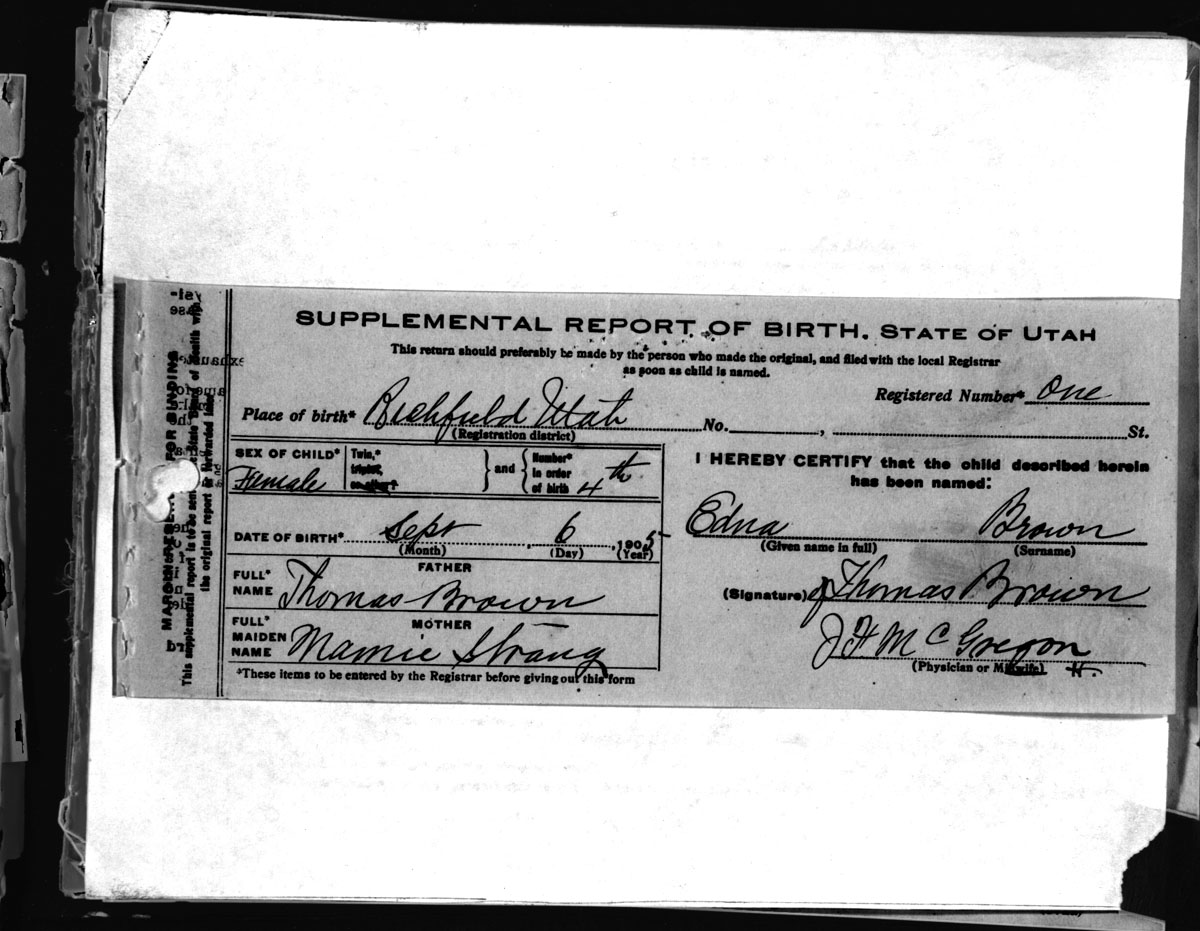 SUPPLEMENTAL REPORT OF BIRTH. STATE OF UTAH
This return should preferably be made by the person who made the original, and filed with the local Registrar
as soon as child is named.
Registered Number* One
Place of birth* Richfield Utah No. , St.
(Registration district)
SEX OF CHILD* Female
Twin,* and Number* in order of birth 4th
I HEREBY CERTIFY that the child described herein
has been named:
DATE OF BIRTH* Sept 6 , 1905
(Month) (Day) (Year)
Edna Brown
(Given name in full) (Surname)
FATHER
FULL* NAME Thomas Brown
(Signature) Thomas Brown
MOTHER
FULL* MAIDEN NAME Mamie Strang
J H McGregor
(Physician or Midwife) H.
*These items to be entered by the Registrar before giving out this form
FOR BINDING
This supplemental report is to be
the original report is forwarded